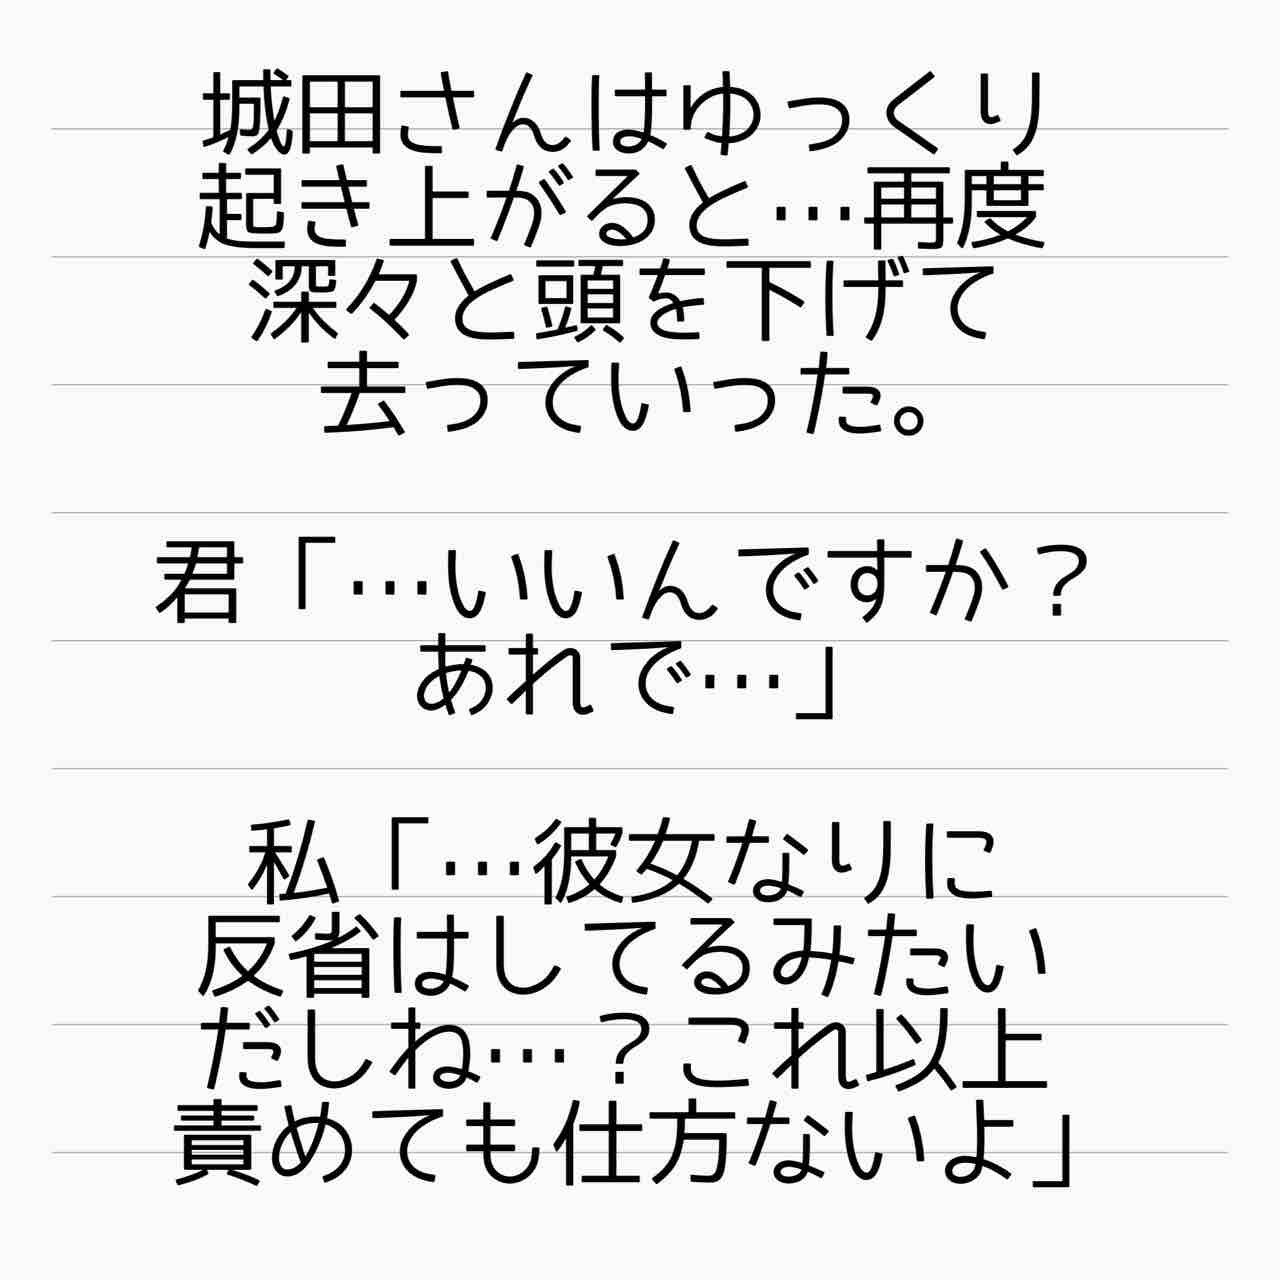 城田さんはゆっくり
起き上がると…再度
深々と頭を下げて
去っていった。
君「…いいんですか？
あれで…」
私「…彼女なりに
反省はしてるみたい
だしね…？これ以上
責めても仕方ないよ」